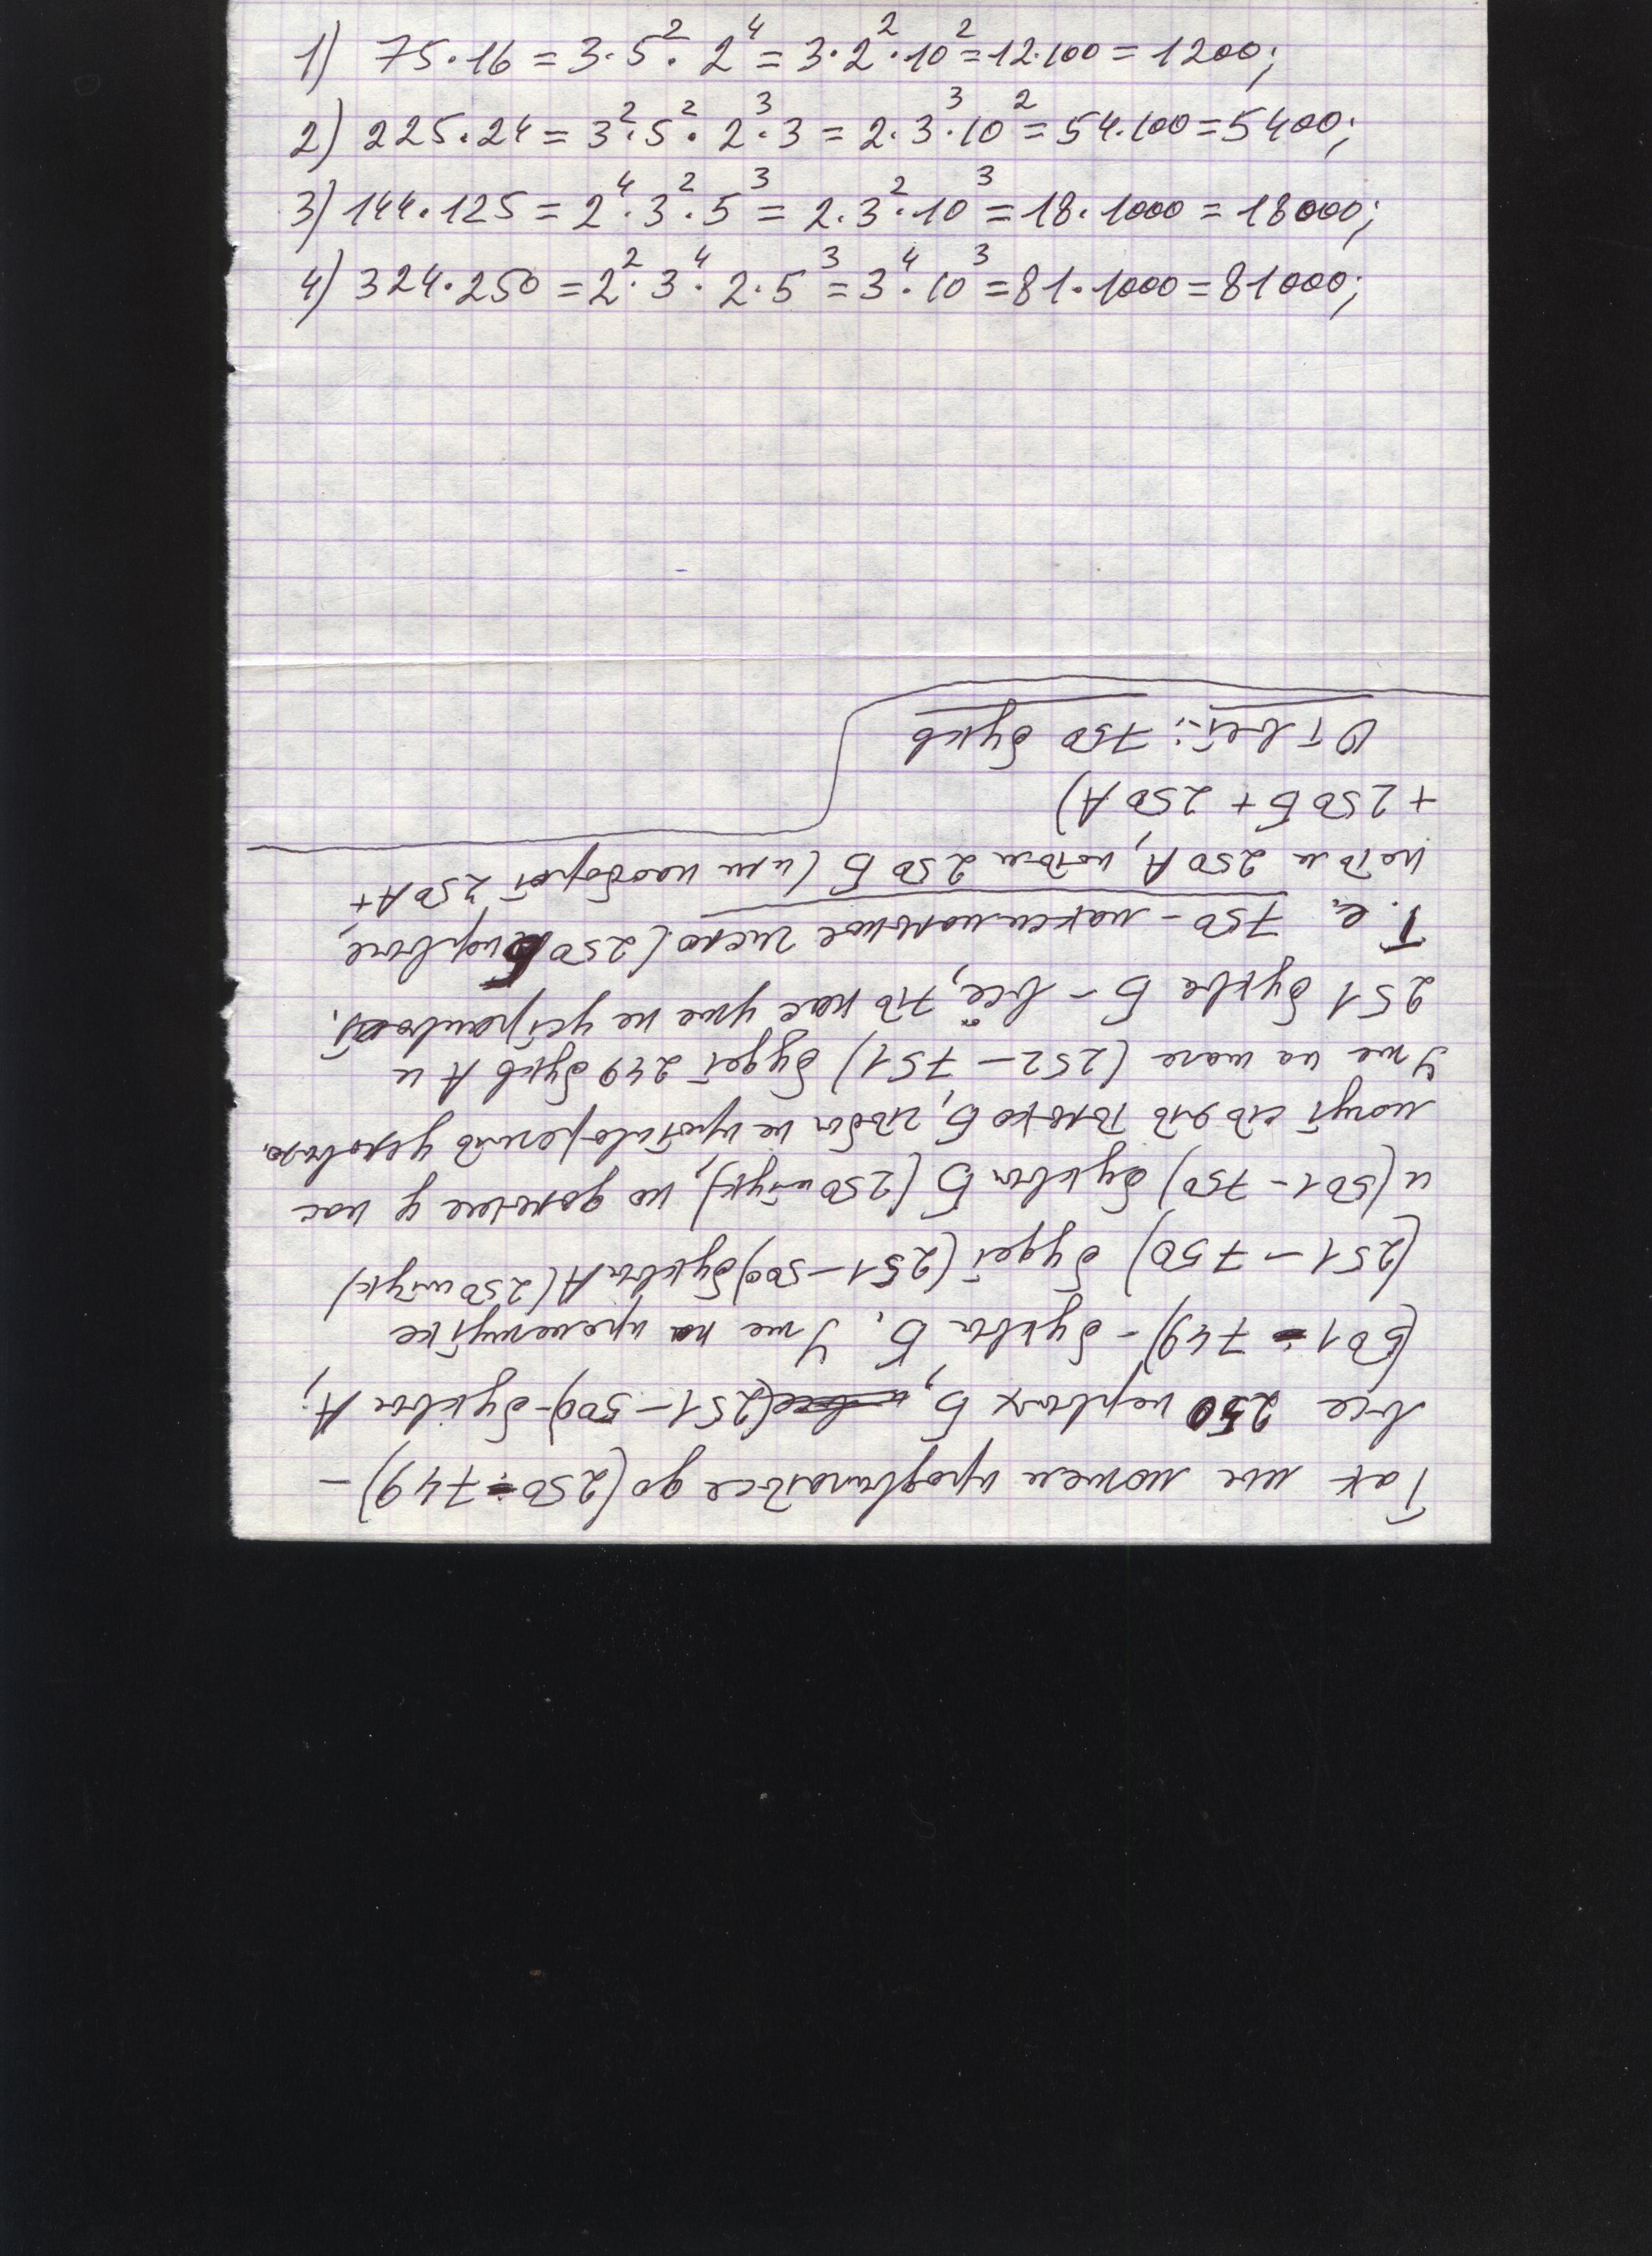 1) 75·16 = 3·5²·2⁴ = 3·2²·10² = 12·100 = 1200;
2) 225·24 = 3²·5²·2³·3 = 2·3³·10² = 54·100 = 5400;
3) 144·125 = 2⁴·3²·5³ = 2·3²·10³ = 18·1000 = 18000;
4) 324·250 = 2²·3⁴·2·5³ = 3⁴·10³ = 81·1000 = 81000;
Так мы можем продвигаться до (250 - 749) -
все 250 первых Б, и все (251 - 500) - буквы А;
(501 - 749) - буквы Б. Уже на промежутке
(251 - 750) будет (251 - 500) буквы А (250 штук)
и (501 - 750) буквы Б (250 штук), но дальше у нас
могут стоять только Б, чтобы не противоречить условию.
Уже на шаге (252 - 751) будет 249 букв А и
251 буква Б - всё, что нас уже не устраивает.
Т.е. 750 - максимальное число (250 Б первые,
потом 250 А, потом 250 Б (или наоборот 250 А +
+ 250 Б + 250 А)
Ответ: 750 букв